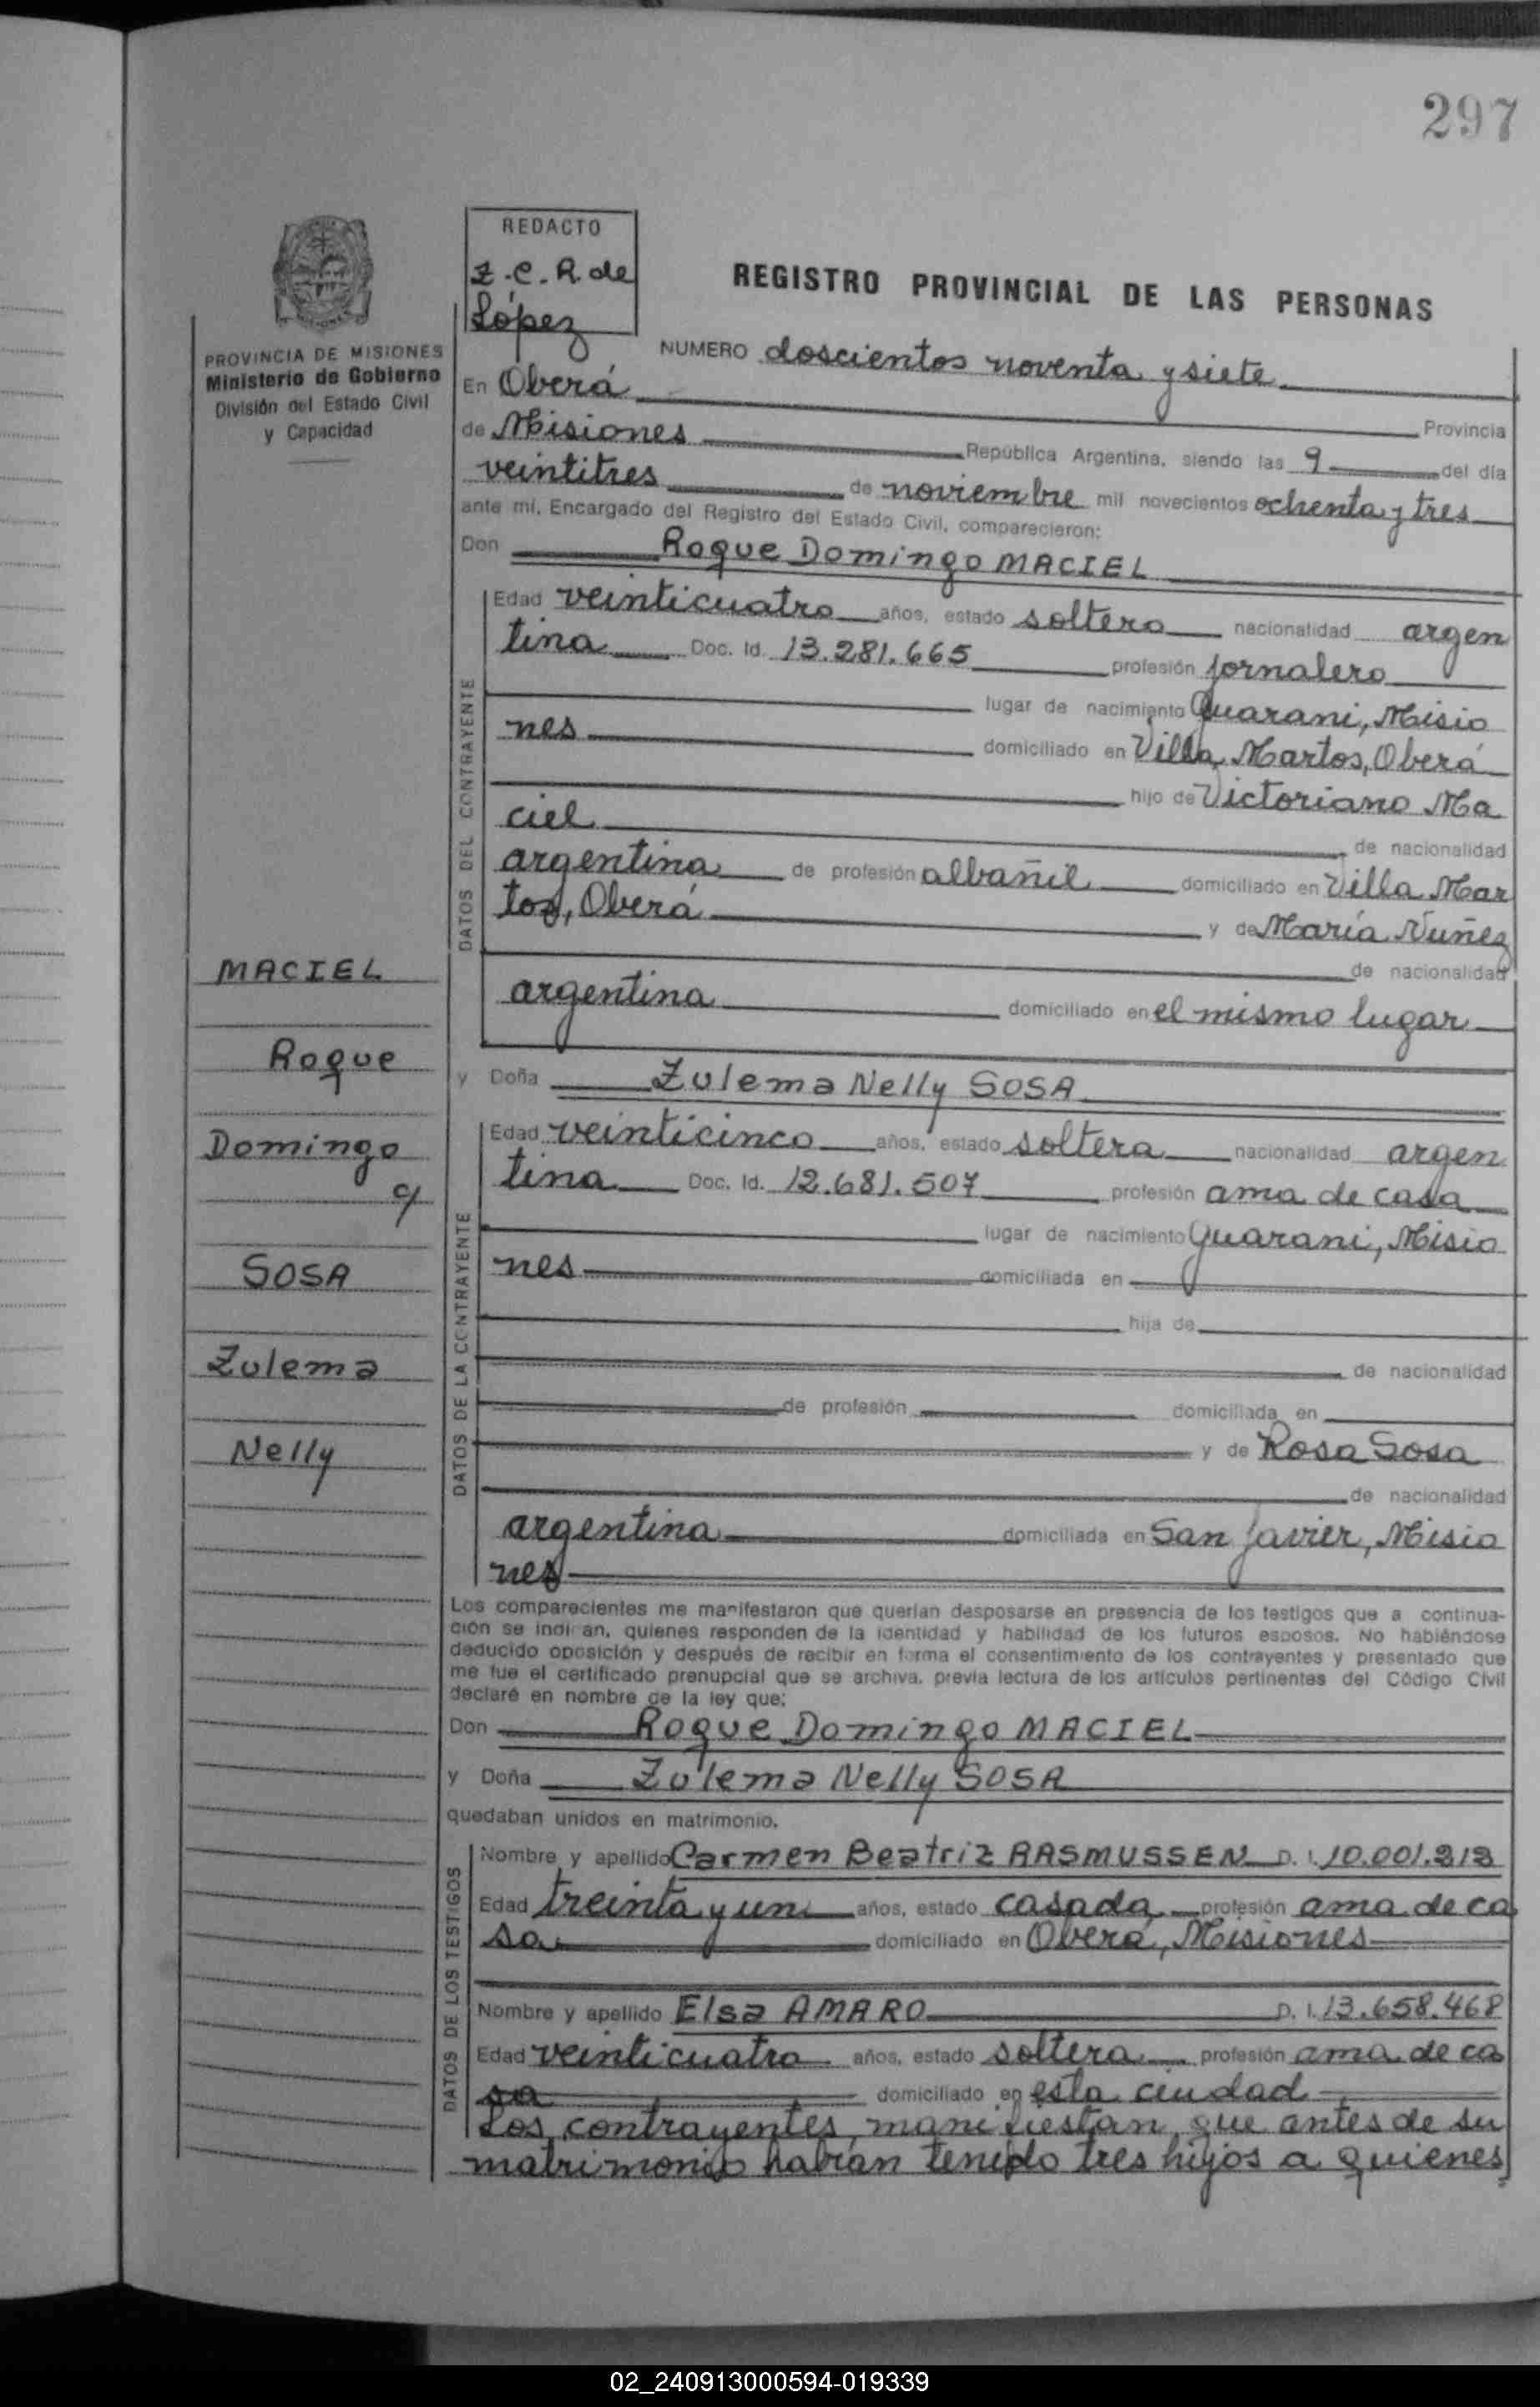 297
REDACTO
Z.C.R. de
López
REGISTRO PROVINCIAL DE LAS PERSONAS
PROVINCIA DE MISIONES
Ministerio de Gobierno
División del Estado Civil
y Capacidad
NUMERO doscientos noventa y siete
En Oberá
Provincia
de Misiones República Argentina, siendo las 9 del día
veintitres de noviembre mil novecientos ochenta y tres
ante mí, Encargado del Registro del Estado Civil, comparecieron:
Don Roque Domingo MACIEL
DATOS DEL CONTRAYENTE
Edad veinticuatro años, estado soltero nacionalidad argen
tina Doc. Id. 13.281.665 profesión jornalero
lugar de nacimiento Guarani, Misio
nes domiciliado en Villa Martos, Oberá
hijo de Victoriano Ma
ciel de nacionalidad
argentina de profesión albañil domiciliado en Villa Mar
tos, Oberá y de María Nuñez
de nacionalidad
argentina domiciliado en el mismo lugar
y Doña Zulema Nelly SOSA
DATOS DE LA CONTRAYENTE
Edad veinticinco años, estado soltera nacionalidad argen
tina Doc. Id. 12.681.507 profesión ama de casa
lugar de nacimiento Guarani, Misio
nes domiciliada en
hija de
de nacionalidad
de profesión domiciliada en
y de Rosa Sosa
de nacionalidad
argentina domiciliada en San Javier, Misio
nes
MACIEL
Roque
Domingo
c/
SOSA
Zulema
Nelly
Los comparecientes me manifestaron que querían desposarse en presencia de los testigos que a continua-
ción se indican, quienes responden de la identidad y habilidad de los futuros esposos. No habiéndose
deducido oposición y después de recibir en forma el consentimiento de los contrayentes y presentado que
me fue el certificado prenupcial que se archiva, previa lectura de los artículos pertinentes del Código Civil
declaré en nombre de la ley que:
Don Roque Domingo MACIEL
y Doña Zulema Nelly SOSA
quedaban unidos en matrimonio.
DATOS DE LOS TESTIGOS
Nombre y apellido Carmen Beatriz RASMUSSEN D. I. 10.001.313
Edad treinta y un años, estado casada profesión ama de ca
sa domiciliado en Oberá, Misiones
Nombre y apellido Elsa AMARO D. I. 13.658.468
Edad veinticuatro años, estado soltera profesión ama de ca
sa domiciliado en esta ciudad
Los contrayentes manifiestan que antes de su
matrimonio habían tenido tres hijos a quienes
02_240913000594-019339